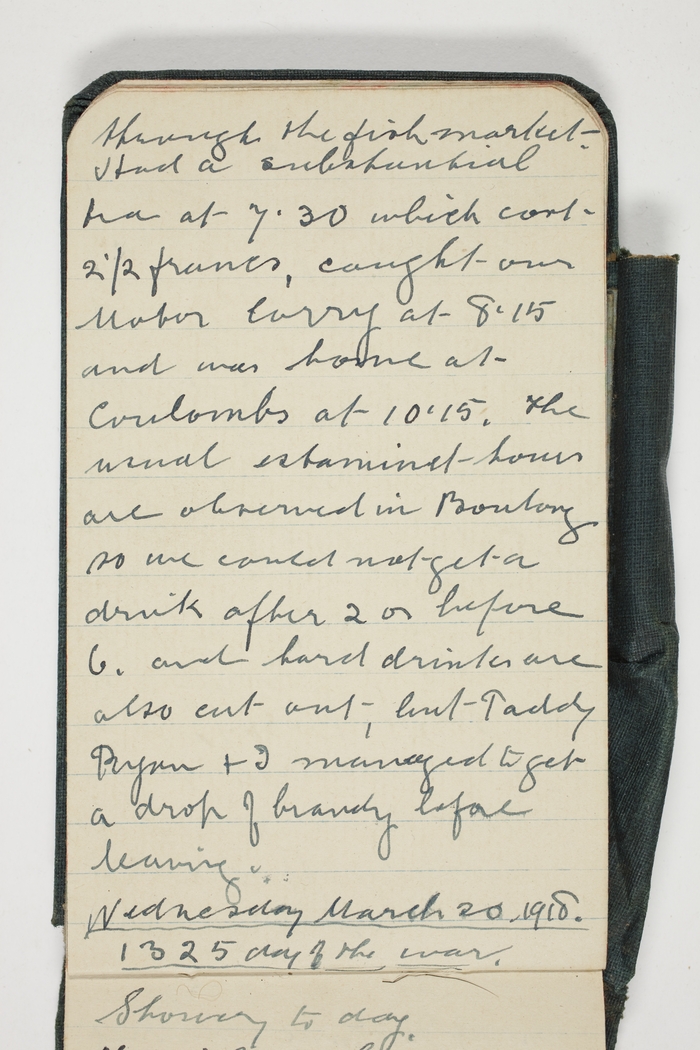 through the fish-market.
Had a substantial
tea at 7.30 which cost
2 1/2 francs, caught our
Motor lorry at 8.15
and was home at
Coulombs at 10.15. The
usual estaminet hours
are observed in Boulong
so we could not get a
drink after 2 or before
6. and hard drinks are
also cut out, but Paddy
Ryan + I managed to get
a drop of brandy before
leaving.
Wednesday March 20. 1918.
1325 day of the war.
Showery to day.